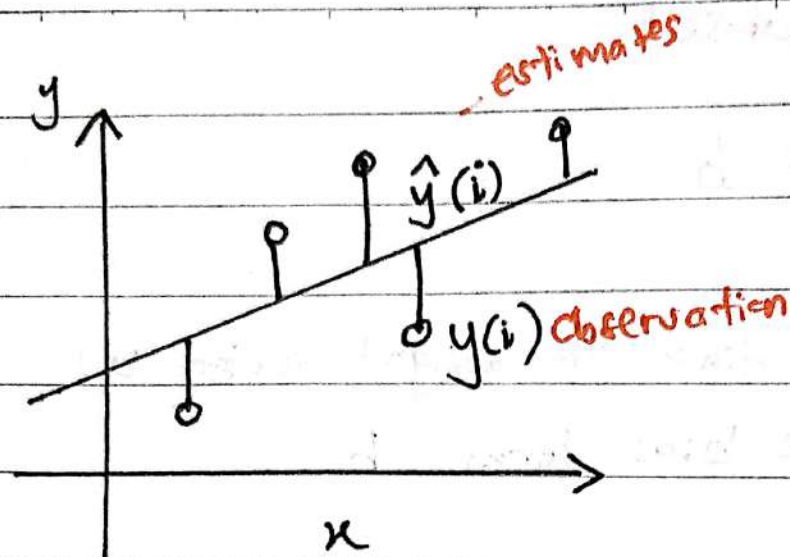 estimates
y
ŷ(i)
y(i) observation
x